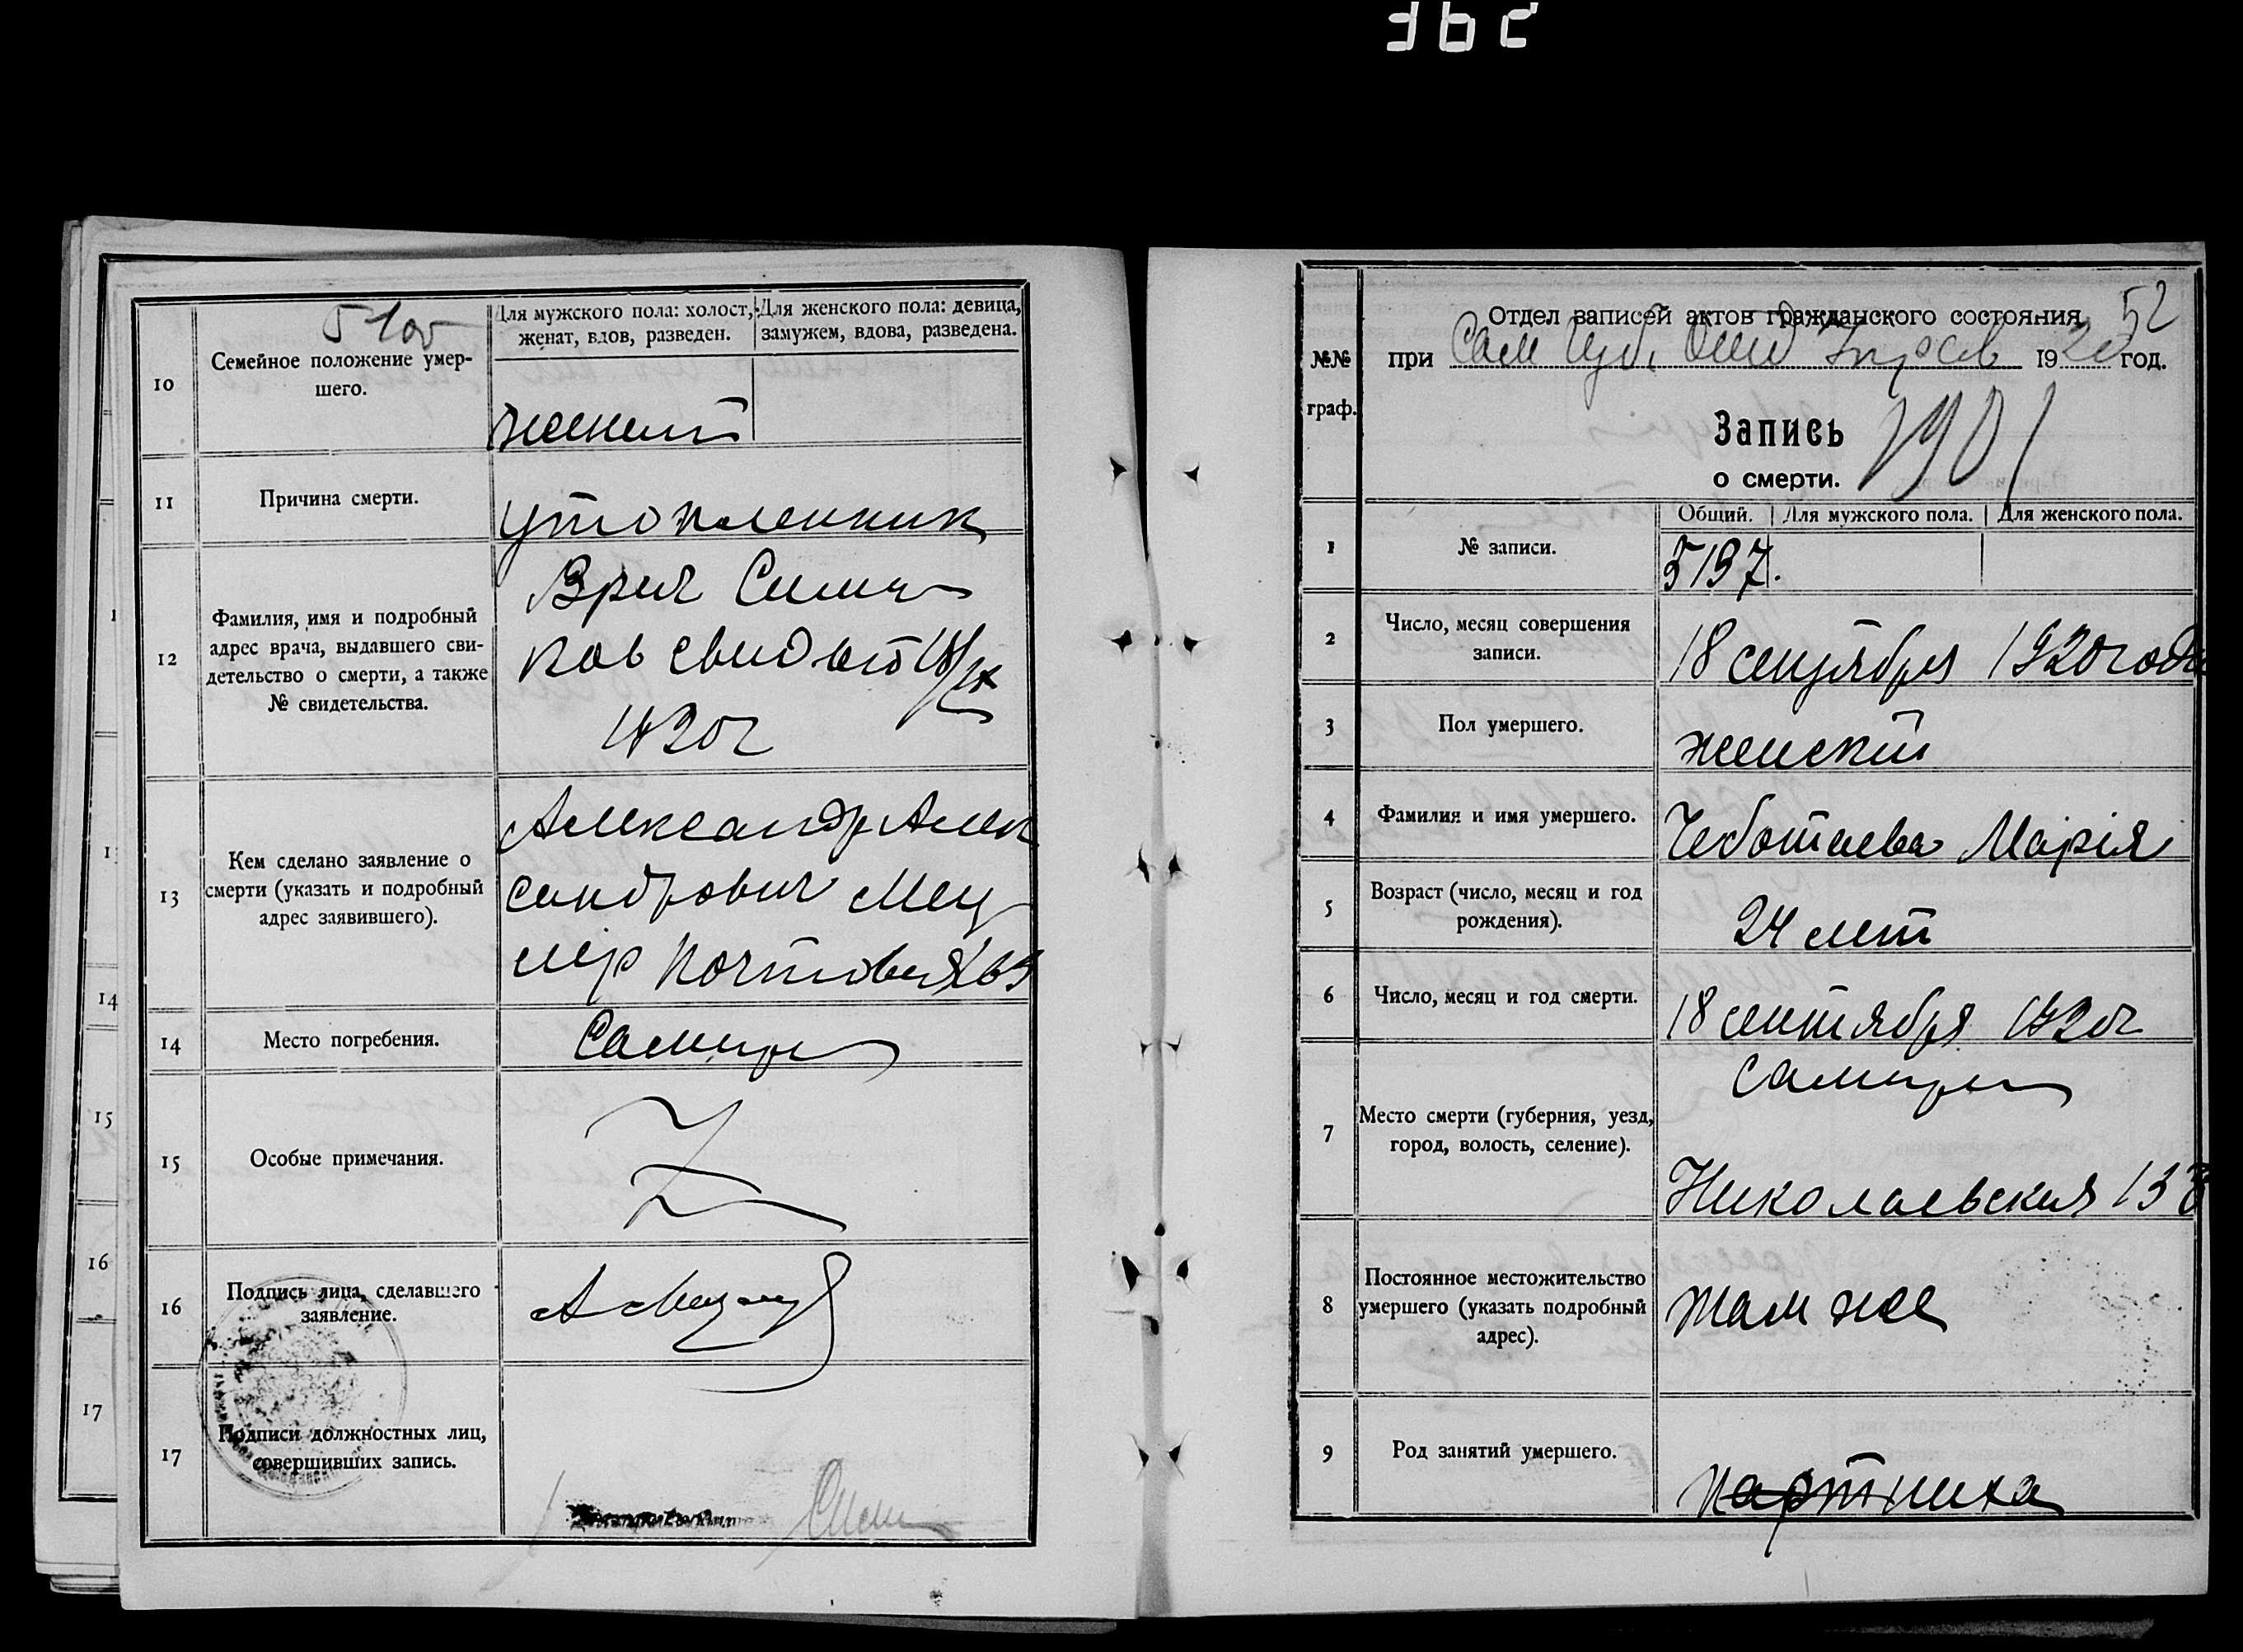 10
Семейное положение умер-
шего.
Для мужского пола: холост,
женат, вдов, разведен.
Для женского пола: девица,
замужем, вдова, разведена.
11
Причина смерти.
утопленник
12
Фамилия, имя и подробный
адрес врача, выдавшего сви-
детельство о смерти, а также
№ свидетельства.
Врач
1920 г
13
Кем сделано заявление о
смерти (указать и подробный
адрес заявившего).
Александр Алек
сандрович Мец
лер Почтовая 63
14
Место погребения.
Самара
15
Особые примечания.
16
Подпись лица, сделавшего
заявление.
17
Подписи должностных лиц,
совершивших запись.
14
15
16
17
52
Отдел записей актов гражданского состояния
при Сам 1920 год.
№№
граф.
Запись
о смерти.
1901
Общий. Для мужского пола. Для женского пола.
1
№ записи.
5197.
2
Число, месяц совершения
записи.
18 сентября 1920 года
3
Пол умершего.
женский
4
Фамилия и имя умершего.
Марія
5
Возраст (число, месяц и год
рождения).
24 лет
6
Число, месяц и год смерти.
18 сентября 1920 г
7
Место смерти (губерния, уезд,
город, волость, селение).
Самара
Николаевская 133
8
Постоянное местожительство
умершего (указать подробный
адрес).
там же
9
Род занятий умершего.
портниха